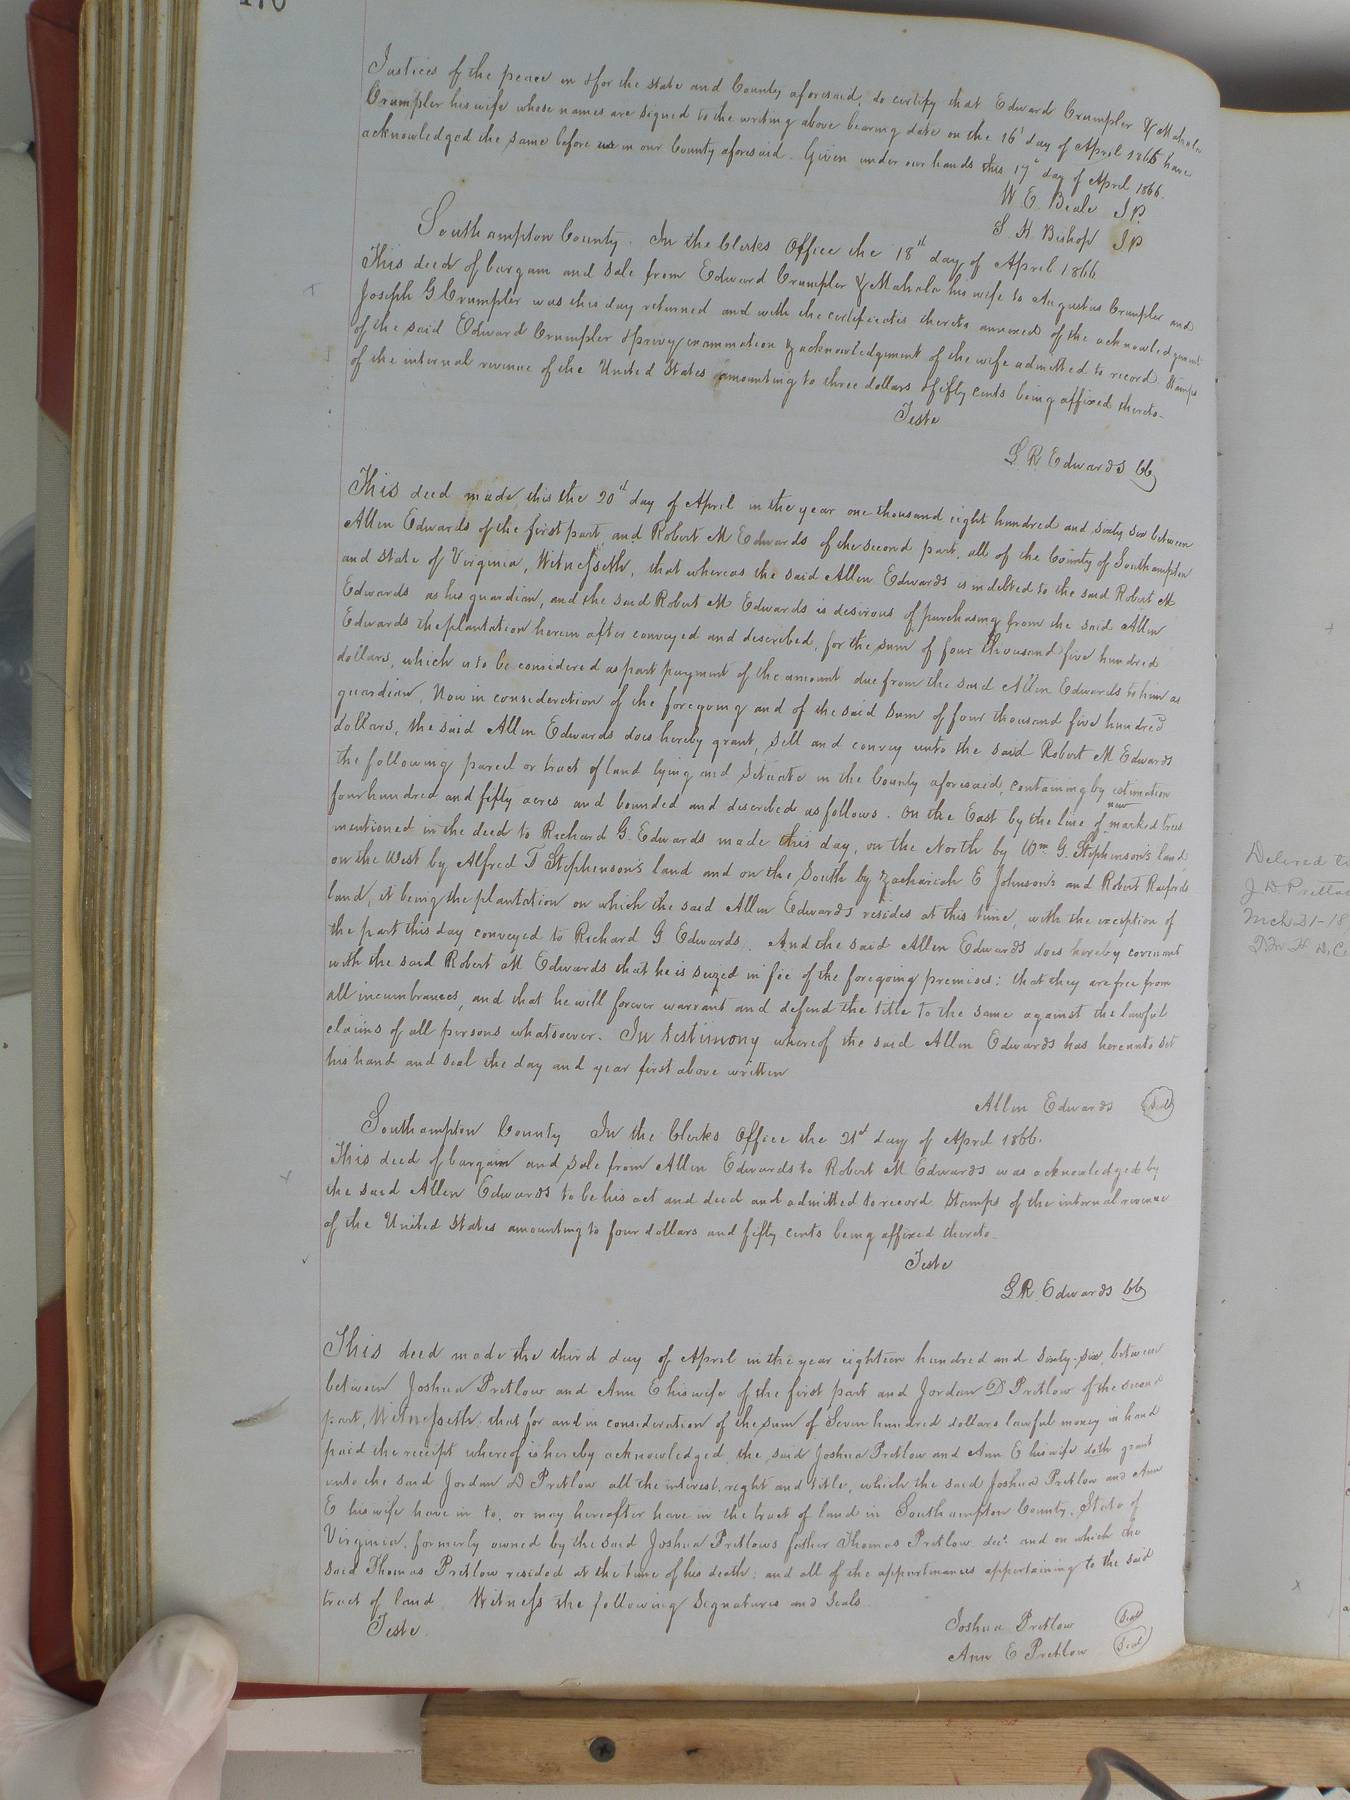 170
Justices of the peace in & for the state and County aforesaid, do certify that Edward Crumpler & Mahala
Crumpler his wife whose names are signed to the writing above bearing date on the 16th day of April 1866 have
acknowledged the same before us in our County aforesaid. Given under our hands this 17th day of April 1866.
W. E. Beale J P.
S. H. Bishop J P
Southampton County. In the Clerks Office the 18th day of April 1866
This deed of bargain and sale from Edward Crumpler & Mahala his wife to Augustus Crumpler and
Joseph G Crumpler was this day returned and with the certificates thereto annexed of the acknowledgment
of the said Edward Crumpler & privy examination & acknowledgment of the wife admitted to record Stamps
of the internal revenue of the United States amounting to three dollars & fifty cents being affixed thereto.
Teste
L R Edwards CC
This deed made this the 20th day of April in the year one thousand eight hundred and sixty six between
Allen Edwards of the first part, and Robert M Edwards of the second part, all of the County of Southampton
and state of Virginia, Witnesseth, that whereas the said Allen Edwards is indebted to the said Robert M
Edwards as his guardian, and the said Robert M Edwards is desirous of purchasing from the said Allen
Edwards the plantation herein after conveyed and described, for the sum of four thousand five hundred
dollars, which is to be considered as part payment of the amount due from the said Allen Edwards to him as
guardian, Now in consideration of the foregoing and of the said sum of four thousand five hundred
dollars, the said Allen Edwards does hereby grant, sell and convey unto the said Robert M Edwards
the following parcel or tract of land lying and situate in the County aforesaid, containing by estimation
four hundred and fifty acres and bounded and described as follows. On the East by the line of new marked trees
mentioned in the deed to Richard G. Edwards made this day, on the North by Wm G. Stephenson's land
on the West by Alfred T Stephenson's land and on the South by Zachariah E Johnson's and Robert Raiford's
land, it being the plantation on which the said Allen Edwards resides at this time, with the exception of
the part this day conveyed to Richard G Edwards. And the said Allen Edwards does hereby covenant
with the said Robert M Edwards that he is seized in fee of the foregoing premises: that they are free from
all incumbrances, and that he will forever warrant and defend the title to the same against the lawful
claims of all persons whatsoever. In testimony whereof the said Allen Edwards has hereunto set
his hand and seal the day and year first above written
Allen Edwards Seal
Southampton County In the Clerks Office the 21st day of April 1866.
This deed of bargain and sale from Allen Edwards to Robert M Edwards was acknowledged by
the said Allen Edwards to be his act and deed and admitted to record Stamps of the internal revenue
of the United States amounting to four dollars and fifty cents being affixed thereto.
Teste
L R Edwards CC
This deed made the third day of April in the year eighteen hundred and sixty-six, between
between Joshua Pretlow and Ann E his wife of the first part and Jordan D Pretlow of the second
part, Witnesseth, that for and in consideration of the sum of Seven hundred dollars lawful money in hand
paid the receipt whereof is hereby acknowledged, the said Joshua Pretlow and Ann E his wife doth grant
unto the said Jordan D Pretlow all the interest, right and title, which the said Joshua Pretlow and Ann
E his wife have in to, or may hereafter have in the tract of land in Southampton County, State of
Virginia, formerly owned by the said Joshua Pretlows father Thomas Pretlow decd. and on which the
said Thomas Pretlow resided at the time of his death: and all of the appurtenances appertaining to the said
tract of land. Witness the following Signatures and Seals.
Teste.
Joshua Pretlow Seal
Ann E Pretlow Seal
Delivered to
J D Pretlow
Mch 31-18